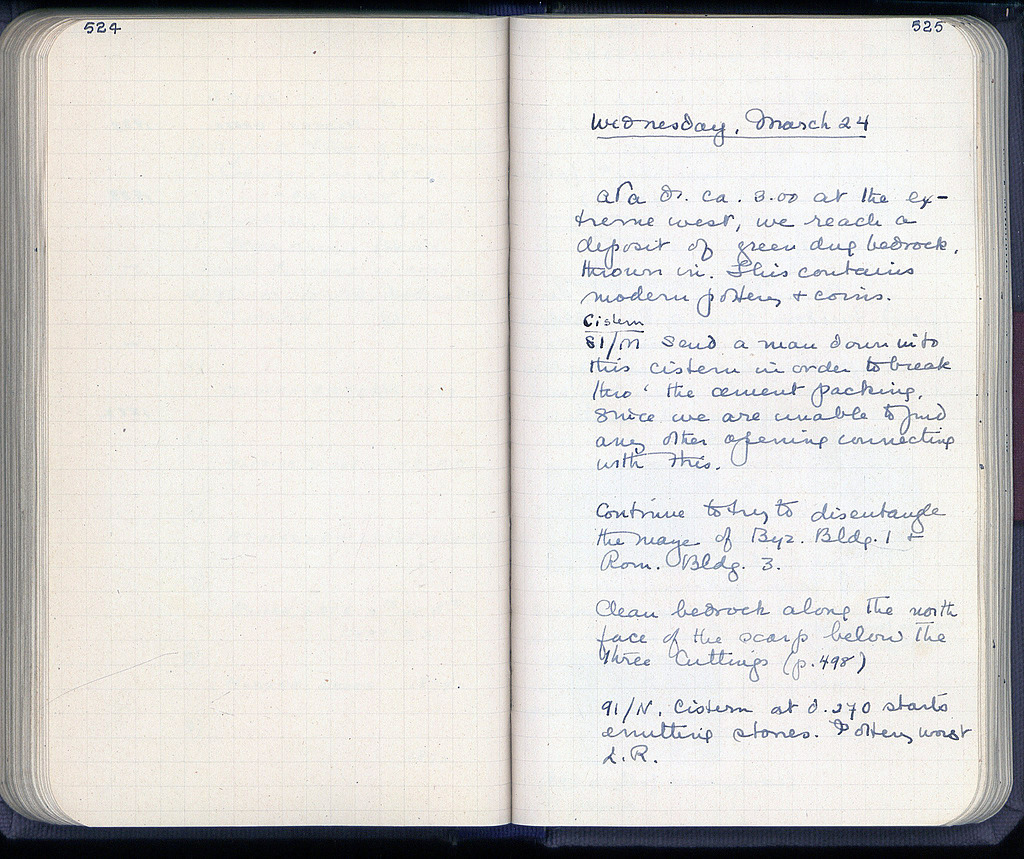 524
525
Wednesday, March 24
At a d. ca. 3.00 at the ex-
treme west, we reach a
deposit of green dug bedrock,
thrown in. This contains
modern pottery + coins.
Cistern
81/ΠΙ Send a man down into
this cistern in order to break
thro' the cement packing,
since we are unable to find
any other opening connecting
with this.
Continue to try to disentangle
the maze of Byz. Bldg. 1 +
Rom. Bldg. 3.
Clean bedrock along the north
face of the scarp below the
three Cuttings (p. 498)
91/N. Cistern at d. 2.70 starts
emitting stones. Pottery worst
L.R.